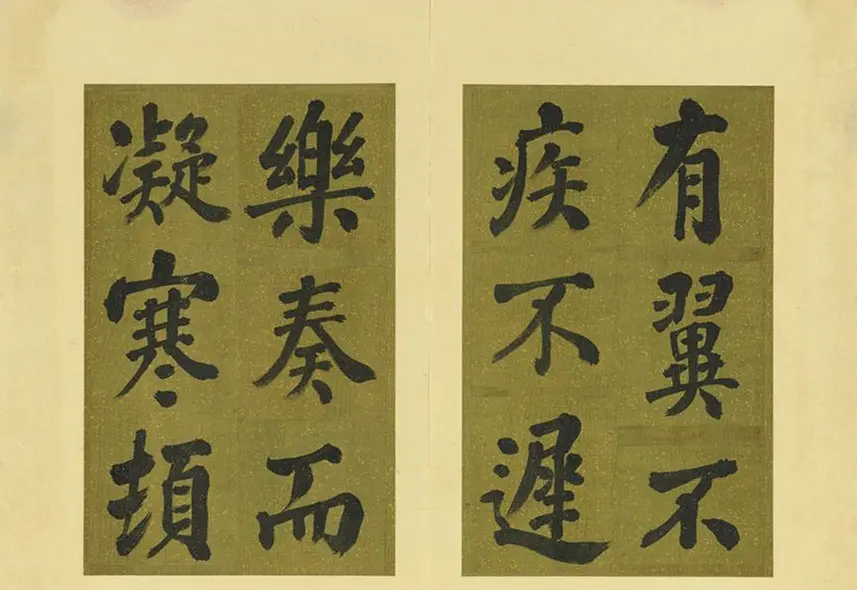 有翼不
疾不遲
樂奏而
凝寒頓